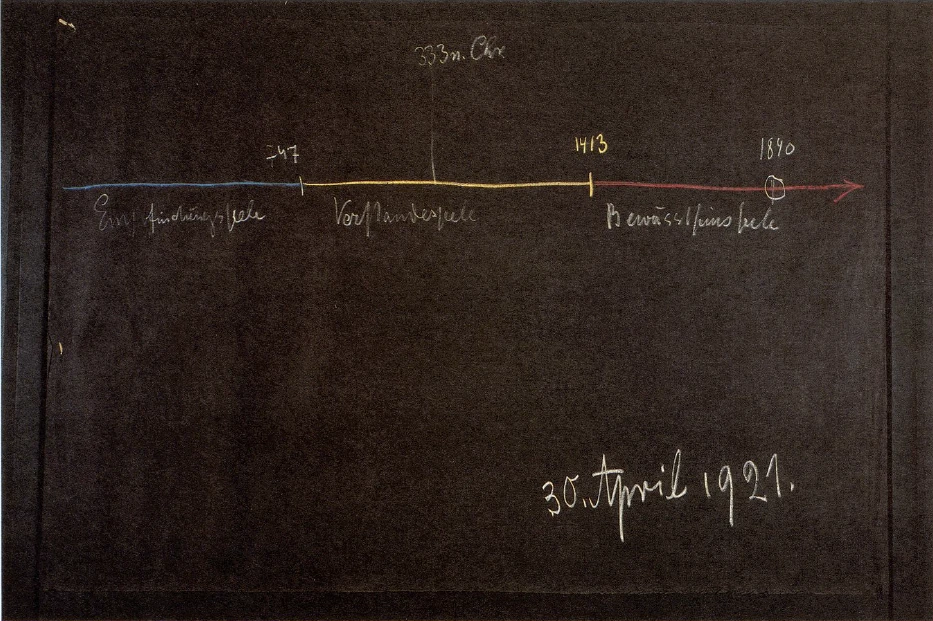 333 n. Chr.
747 1413 1840
Empfindungsseele Verstandesseele Bewusstseinsseele
30. April 1921.